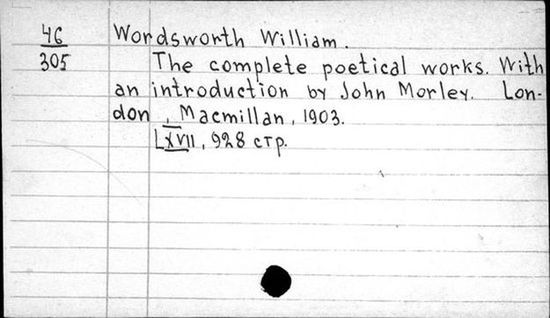 46 Wordsworth William.
305 The complete poetical works. With
an introduction by John Morley. Lon-
don, Macmillan, 1903.
LXVII, 928 стр.